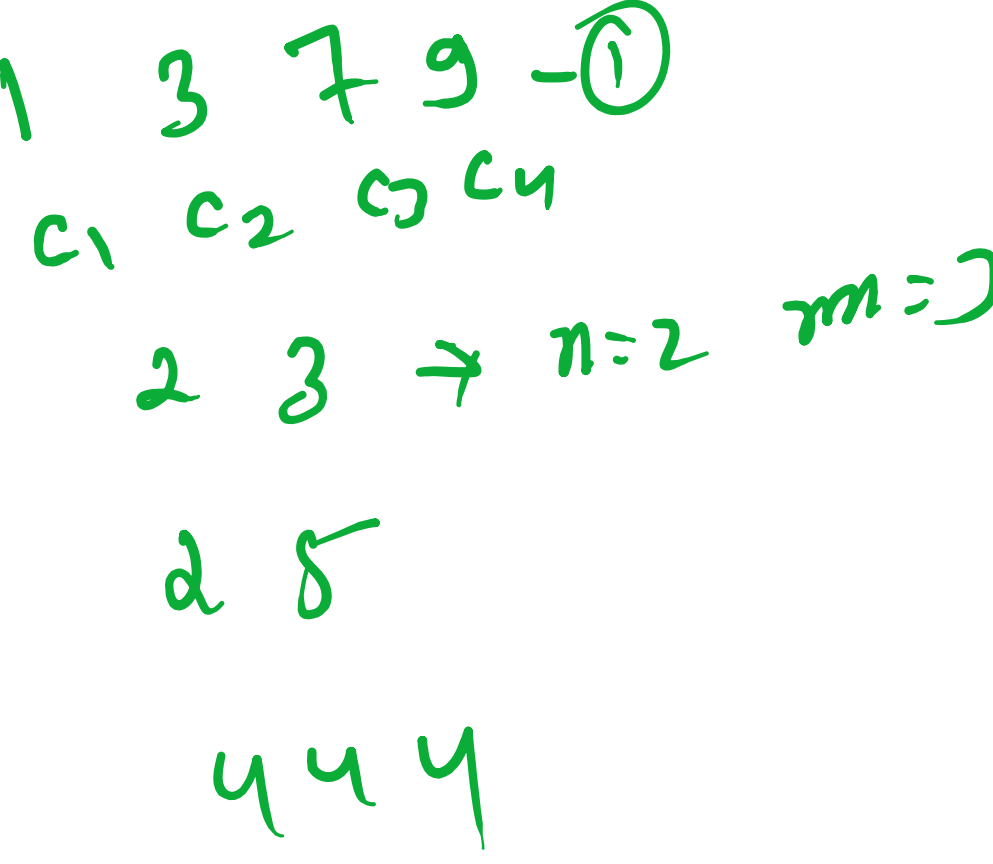 1 3 7 9 - ①
C1 C2 C3 C4
2 3 → n=2 m=3
2 8
4 4 4